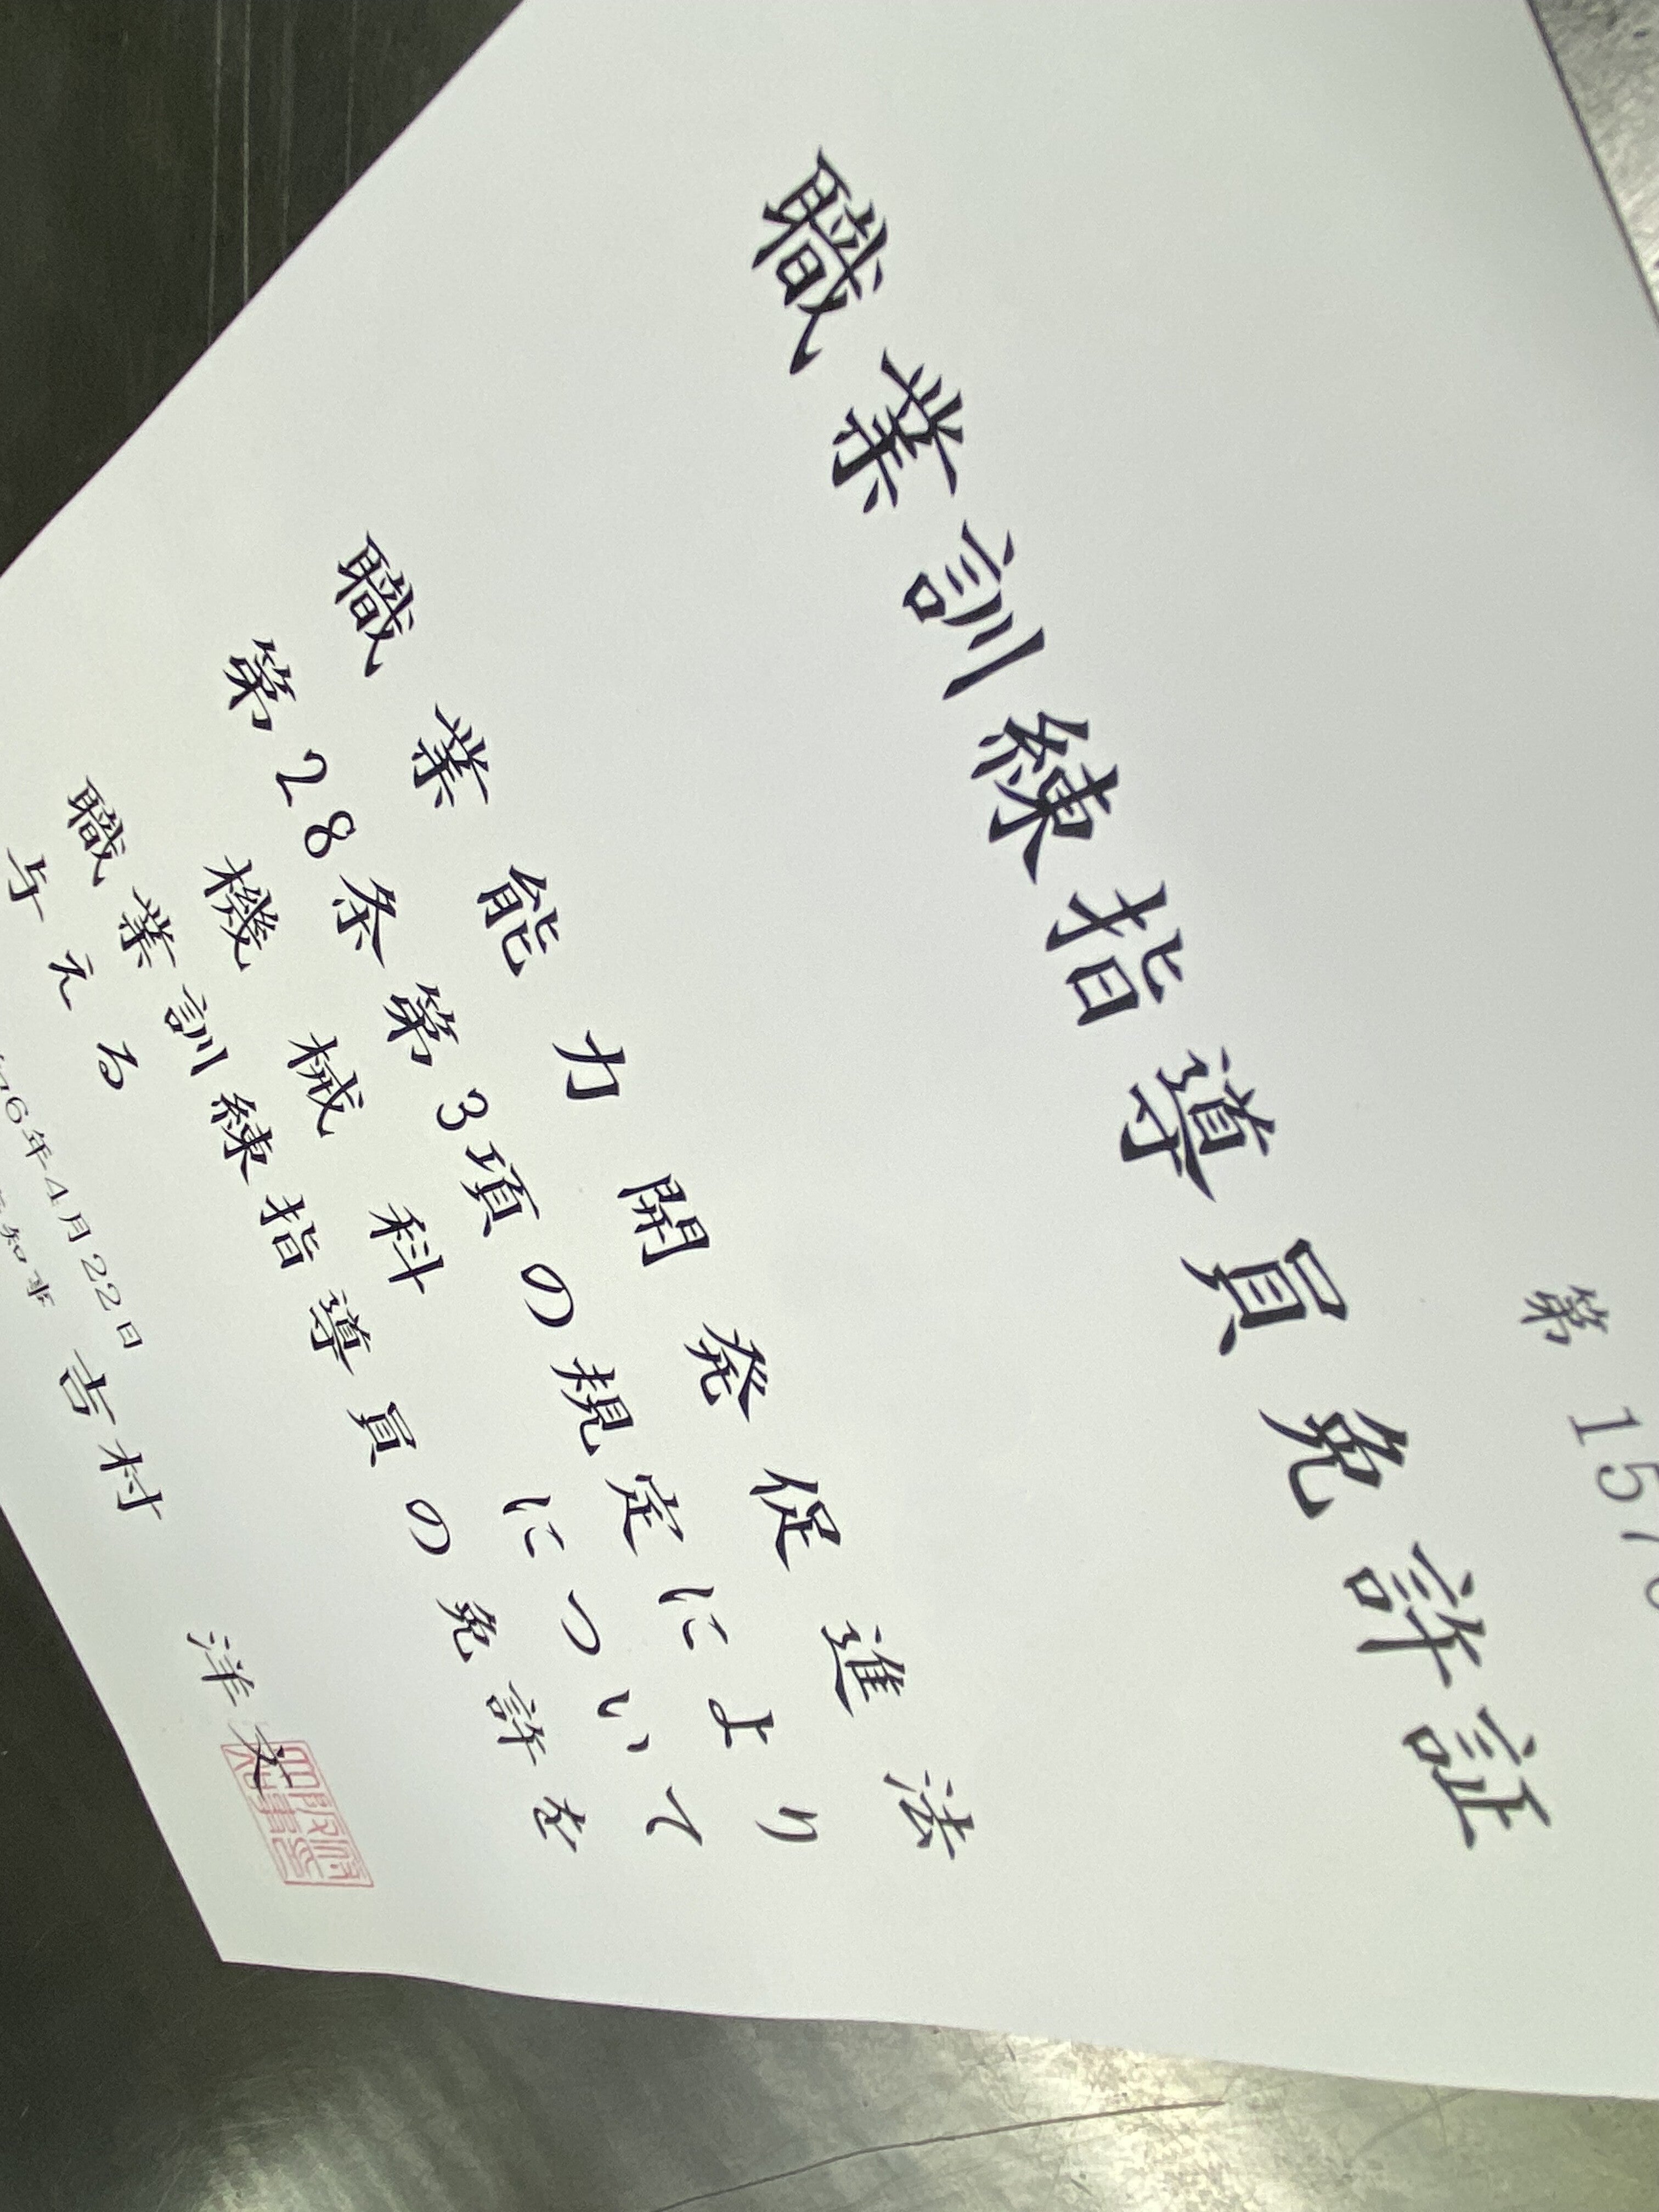 第 157
職業訓練指導員免許証
職業能力開発促進法
第28条第3項の規定により
機械科について
職業訓練指導員の免許を
与える
6年4月22日
知事 吉村 洋文